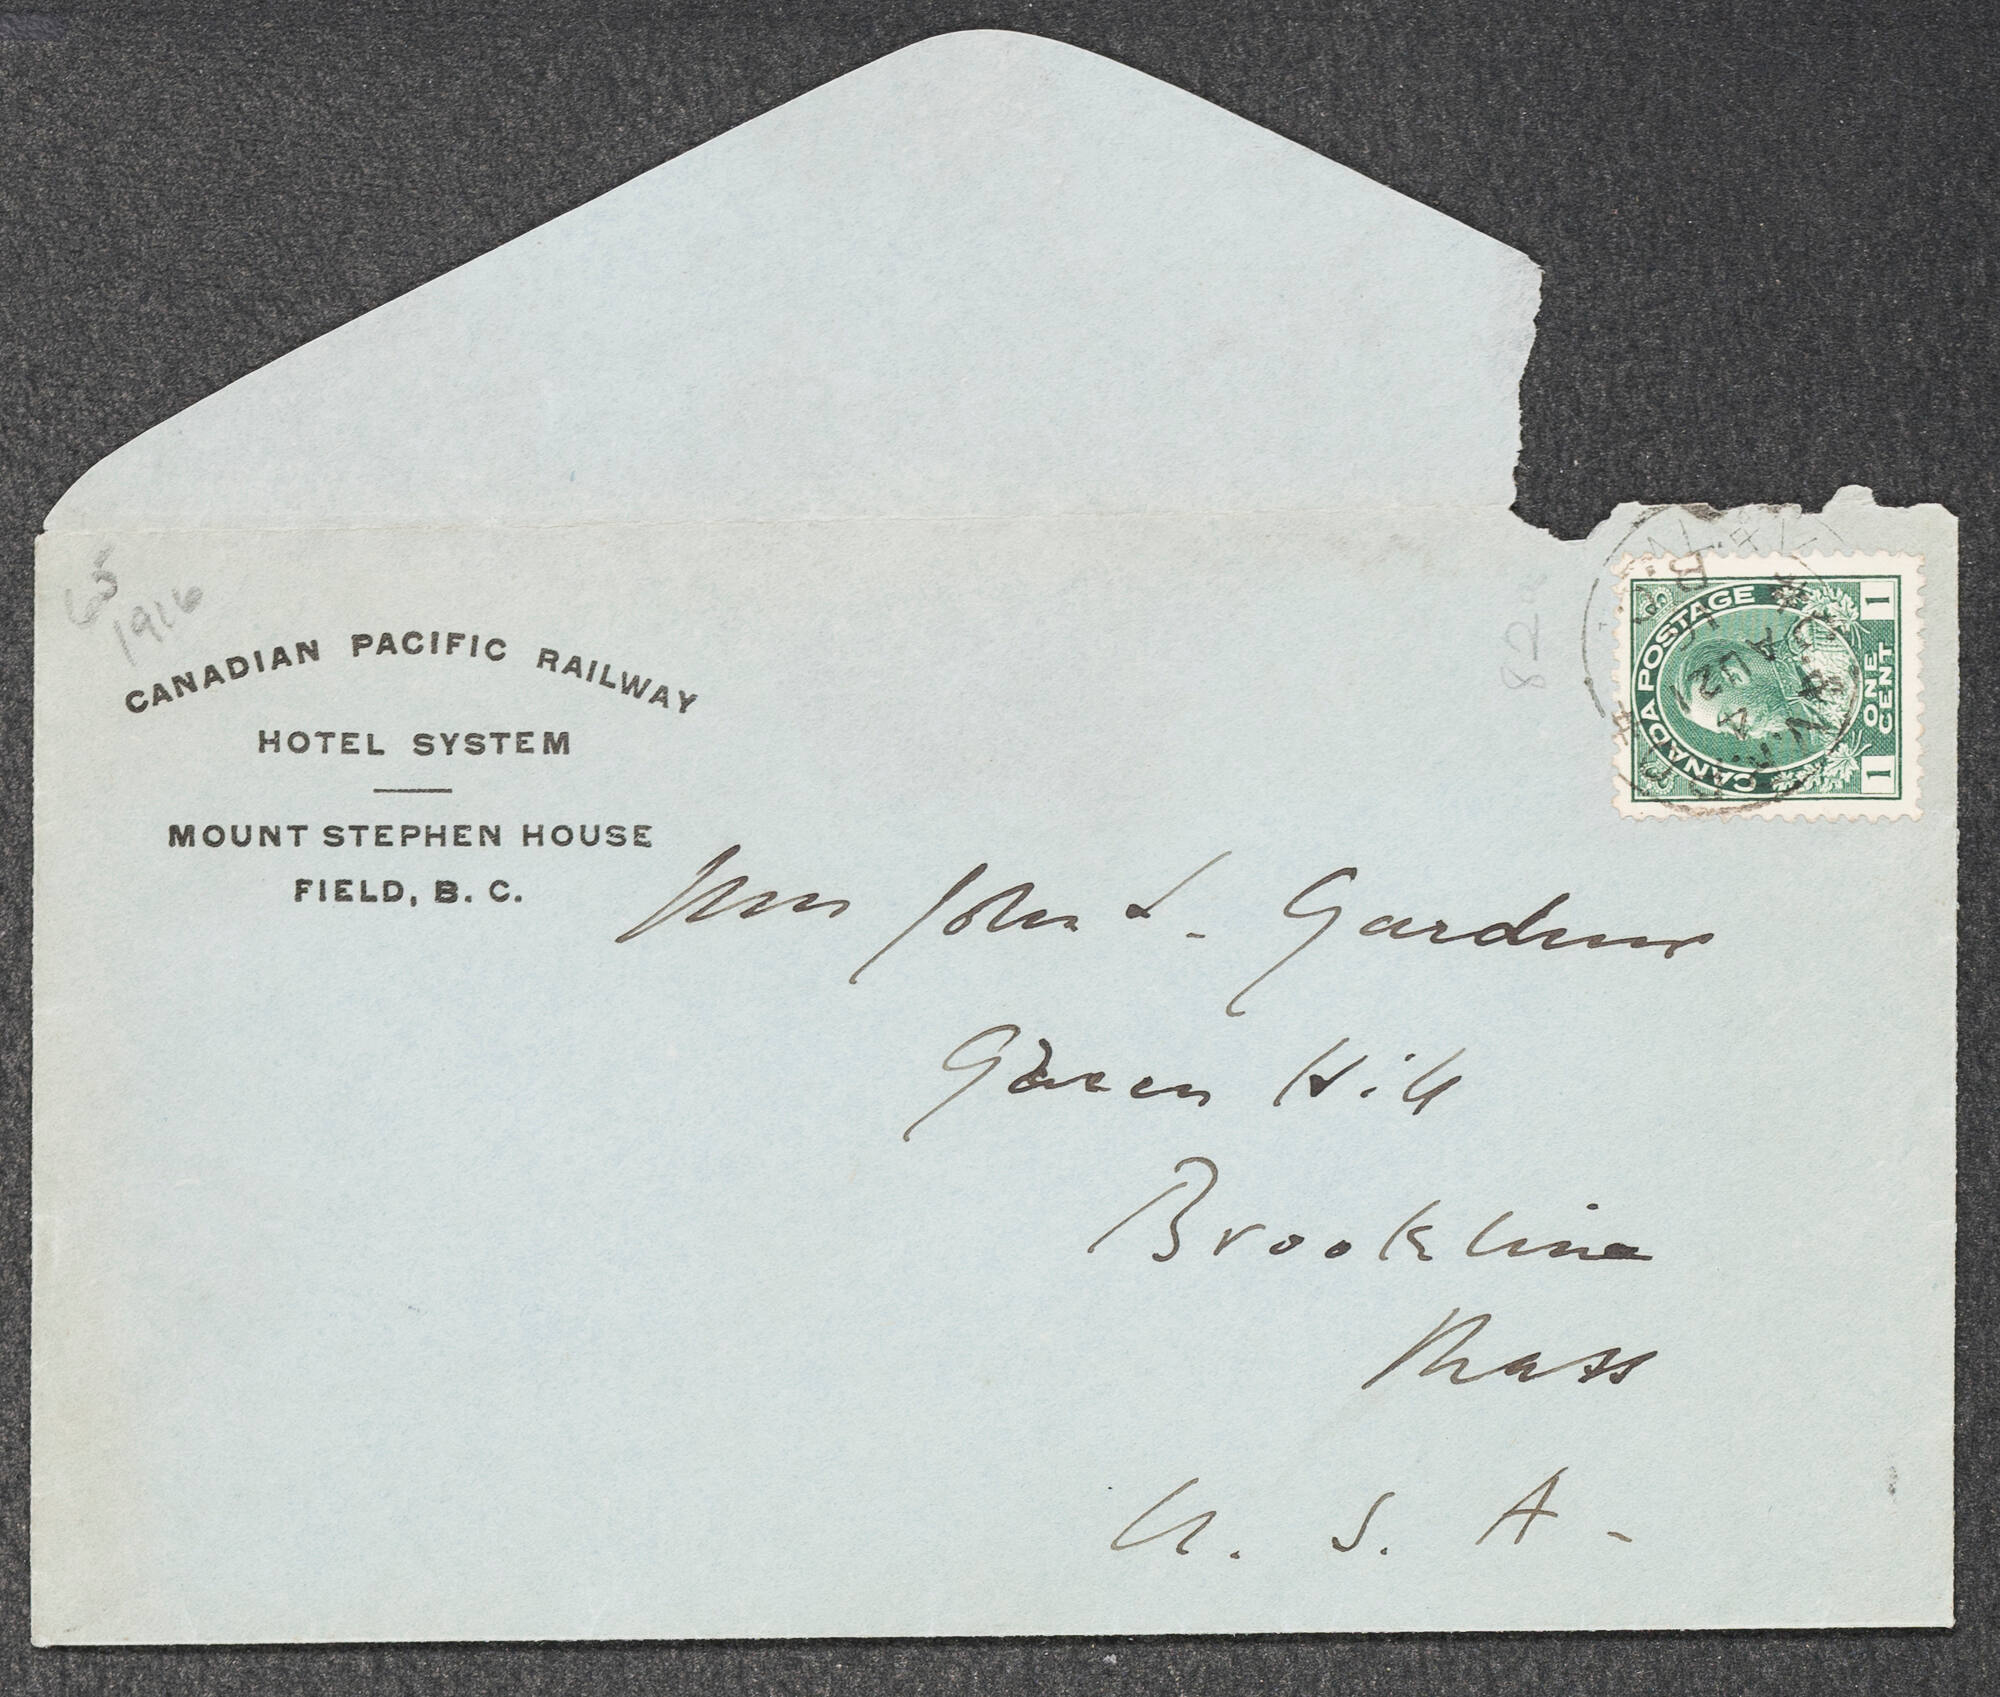 65
1916
CANADIAN PACIFIC RAILWAY
HOTEL SYSTEM
MOUNT STEPHEN HOUSE
FIELD, B. C.
CANADA POSTAGE
ONE
CENT
1
1
AU 21
Mrs John L. Gardner
Green Hill
Brookline
Mass
U. S. A.